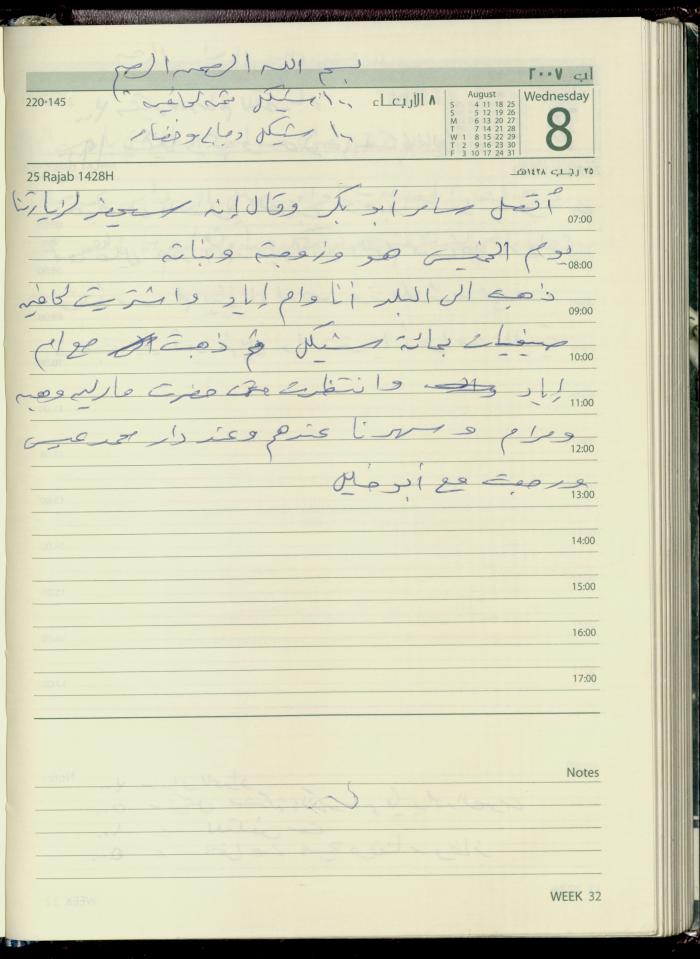 بسم الله الرحمن الرحيم
آب ٢٠٠٧
220-145
١٠٠ شيكل ثمن لحافيه
٨ الأربعـاء
August
S 4 11 18 25
S 5 12 19 26
M 6 13 20 27
T 7 14 21 28
W 1 8 15 22 29
T 2 9 16 23 30
F 3 10 17 24 31
Wednesday
8
١٠٠ شيكل دجاج وخضار
25 Rajab 1428H
٢٥ رجـب ١٤٢٨هـ
أتصل سامر أبو بكر وقال إنه سيحضر لزيارتنا
07:00
يوم الخميس هو وزوجته وبناته
08:00
ذهبت الى البلد أنا وام إياد واشتريت لحافيه
09:00
صيفيات بمائة شيكل ثم ذهبت مع ام
10:00
إياد وانتظرت حتى حضرت مارليه وهبه
11:00
ومرام وسهرنا عندهم وعند دار محمد عيسى
12:00
ورجعت مع أبو خليل
13:00
14:00
15:00
16:00
17:00
Notes
WEEK 32